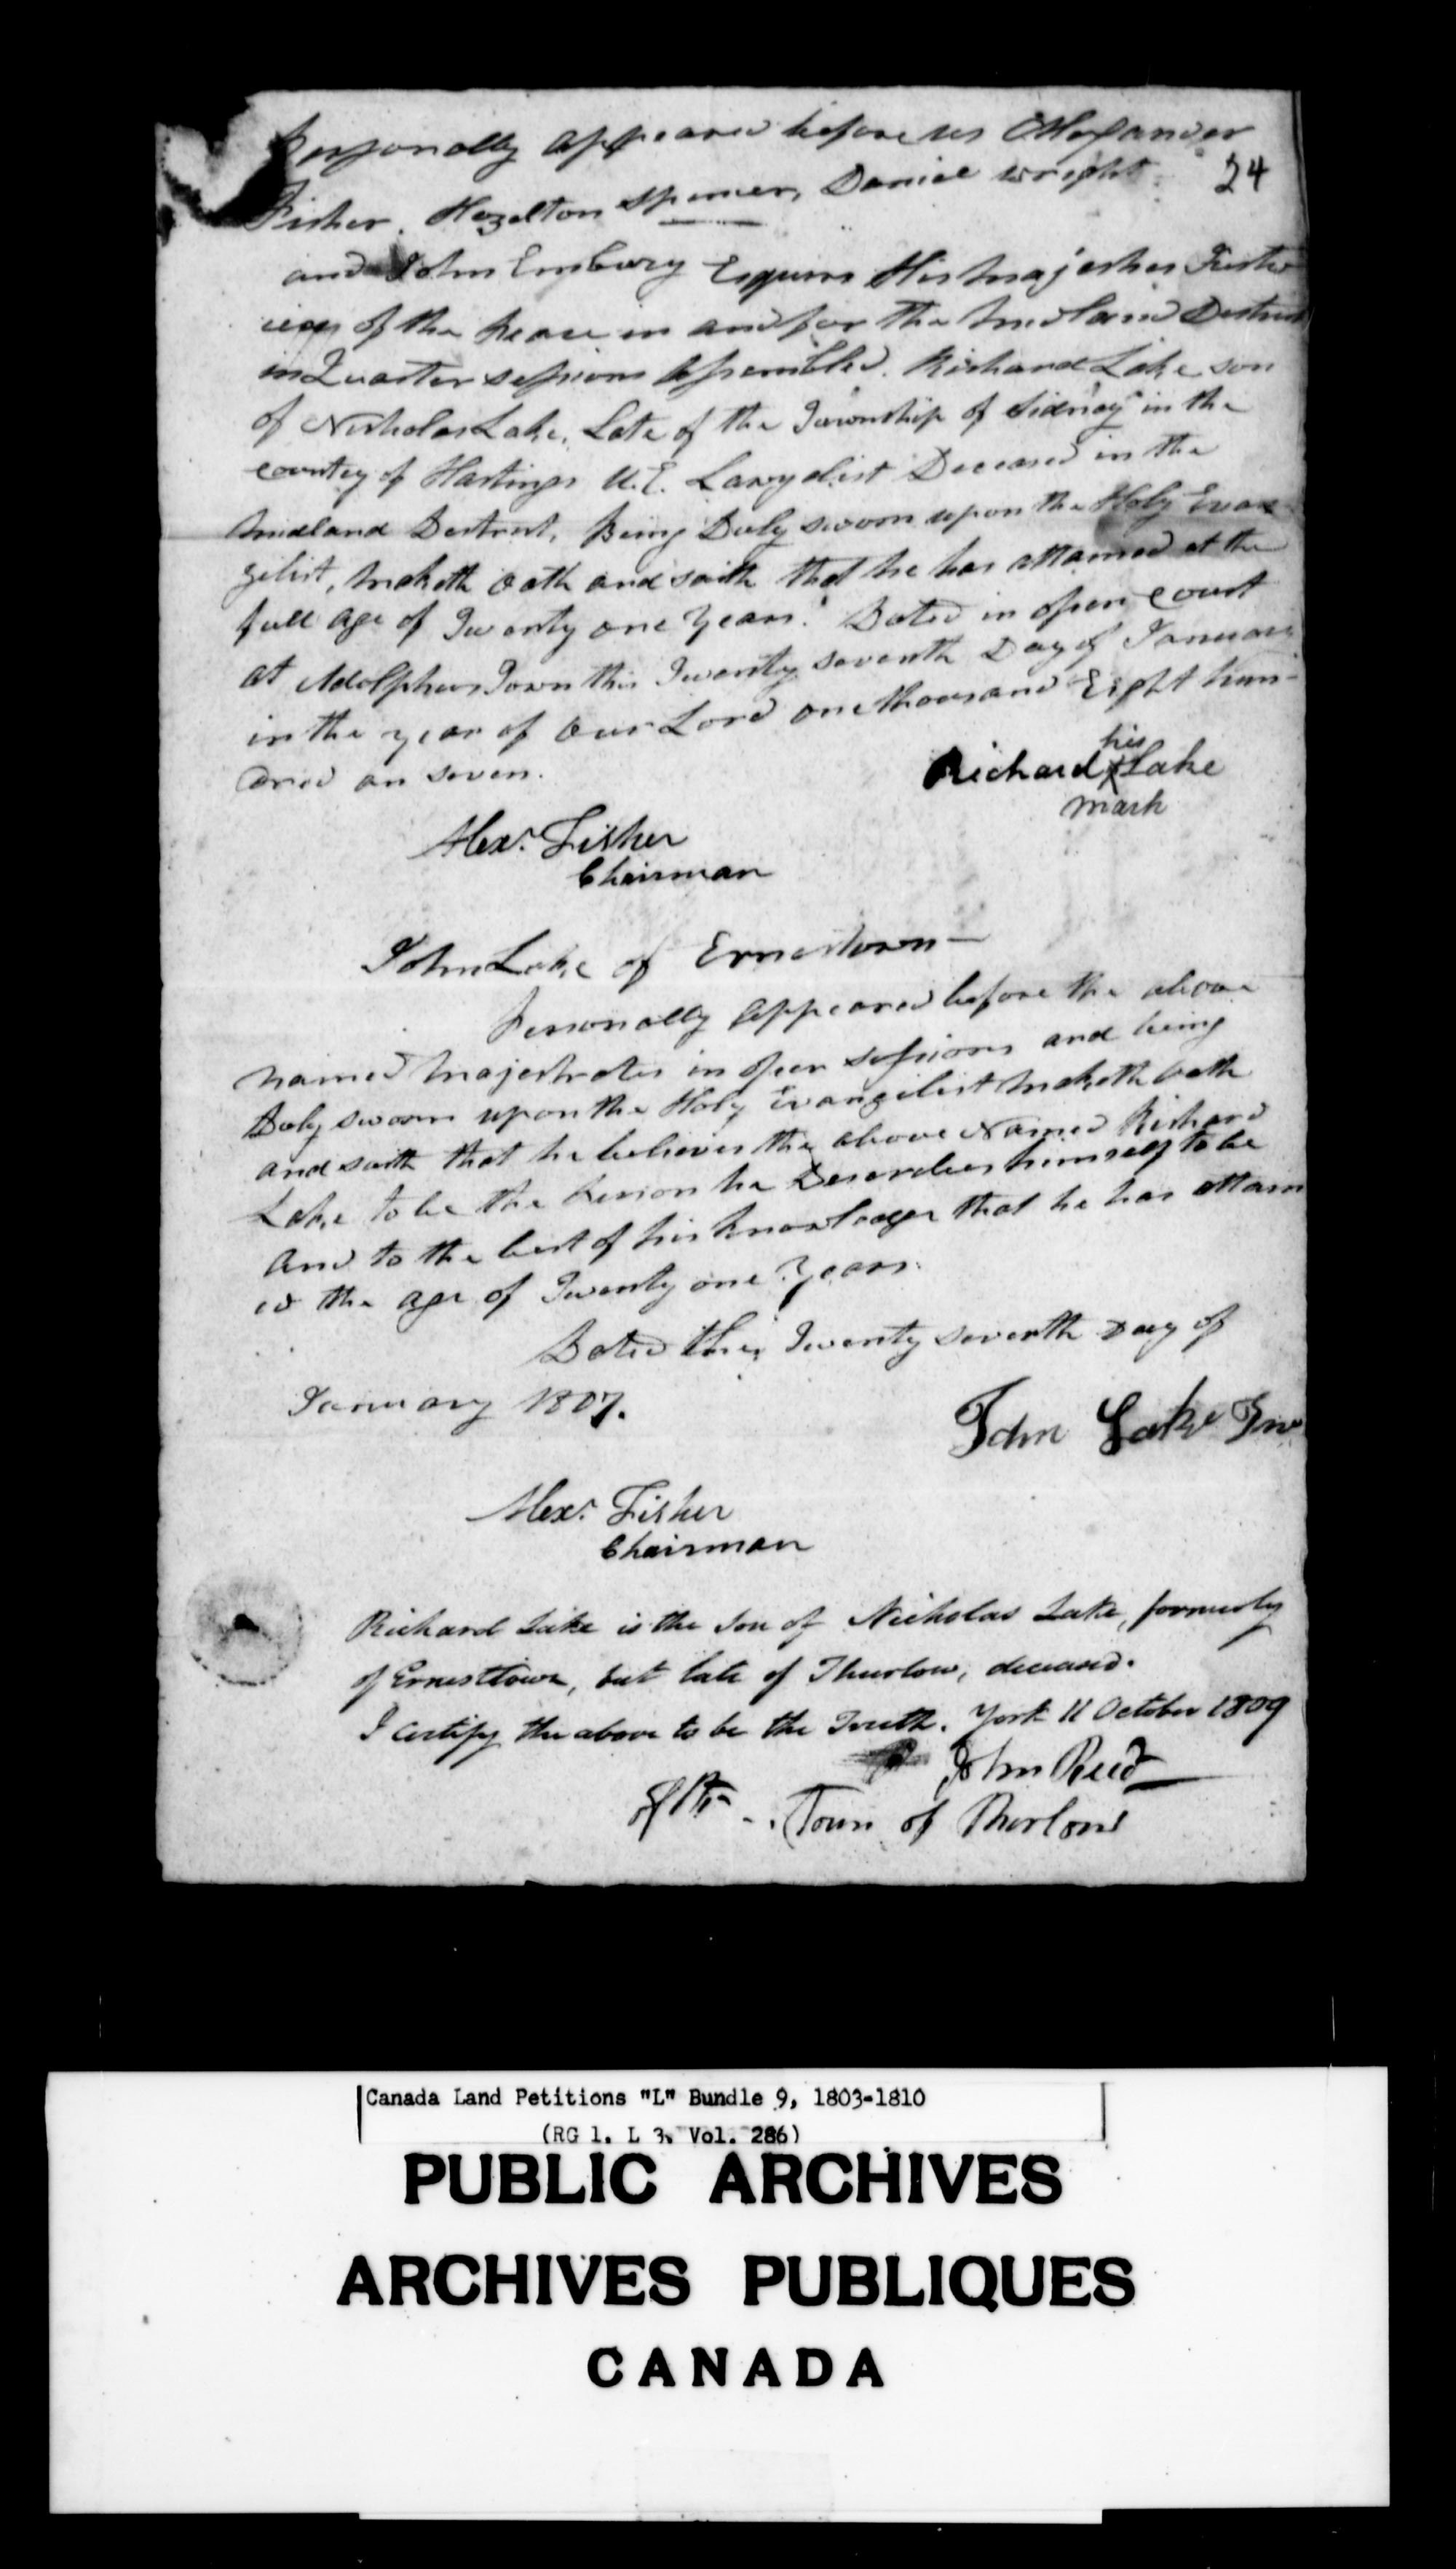 Personally appeared before us Alexander
24
Fisher. Hazelton Spencer, Daniel wright
and John Embury Esquires His Majesties Justi
ices of the Peace in and for the Midland District
in Quarter sessions Assembled. Richard Lake son
of Nicholas Lake, Late of the Township of Sidney in the
county of Hastings U.E. Loayelist Deceased in the
Midland District, Being Duly sworn upon the Holy Evan
gelist, Maketh Oath and saith that he has attained at the
full age of Twenty one Years. Dated in open court
at Adolphus Town this Twenty seventh Day of January
in the year of Our Lord one thousand Eight hun-
dred an seven.
his
Richard X Lake
mark
Alexr. Fisher
Chairman
John Lake of Ernestown —
Personally Appeared before the above
named Majestrates in open sessions and being
Duly sworn upon the Holy Evangelist Maketh Oath
and saith that he believes the above Named Richard
Lake to be the Person he Describes himself to be
And to the best of his knowledge that he has attain
ed the age of Twenty one Years.
Dated this Twenty seventh Day of
January 1807.
John Lake Jnr
Alexr. Fisher
Chairman
Richard Lake is the Son of Nicholas Lake, formerly
of Ernesttown, but late of Thurlow, deceased.
I certify the above to be the Truth. York 11 October 1809
John Reed
Town of Thorlow
Canada Land Petitions "L" Bundle 9, 1803-1810
(RG 1, L 3, Vol. 286)
PUBLIC ARCHIVES
ARCHIVES PUBLIQUES
CANADA